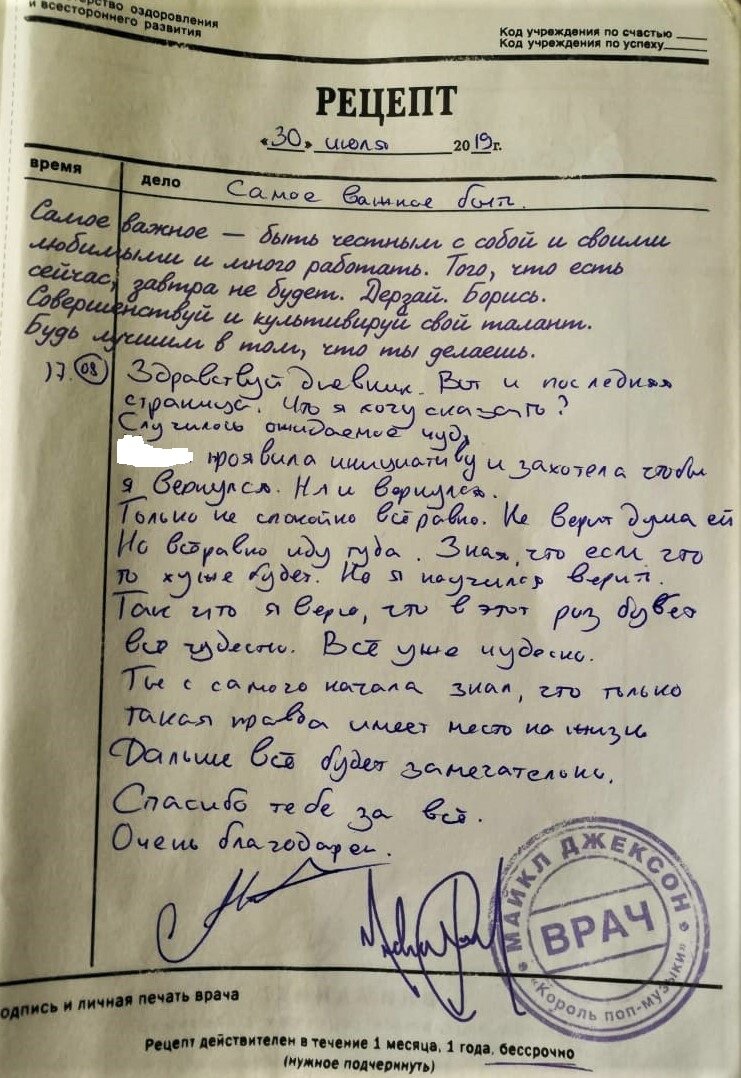 ерство оздоровления
и всестороннего развития
Код учреждения по счастью
Код учреждения по успеху
РЕЦЕПТ
«30» июля 2019г.
время
дело
Самое важное быть.
Самое важное — быть честным с собой и своими
любимыми и много работать. Того, что есть
сейчас, завтра не будет. Дерзай. Борись.
Совершенствуй и культивируй свой талант.
Будь лучшим в том, что ты делаешь.
17.08 Здравствуй дневник. Вот и последняя
страница. Что я хочу сказать?
Случилось ожидаемое чудо
проявила инициативу и захотела чтобы
я вернулся. Ну и вернулся.
Только не спокойно всё равно. Не верит душа ей
Но всёравно иду туда. Зная, что если что
то хуже будет. Но я научился верить.
Так что я верю, что в этот раз будет
всё чудесно. Всё уже чудесно.
Ты с самого начала знал, что только
такая правда имеет место на жизнь
Дальше всё будет замечательно.
Спасибо тебе за всё.
Очень благодарен.
МАЙКЛ ДЖЕКСОН
ВРАЧ
«Король поп-музыки»
одпись и личная печать врача
Рецепт действителен в течение 1 месяца, 1 года, бессрочно
(нужное подчеркнуть)